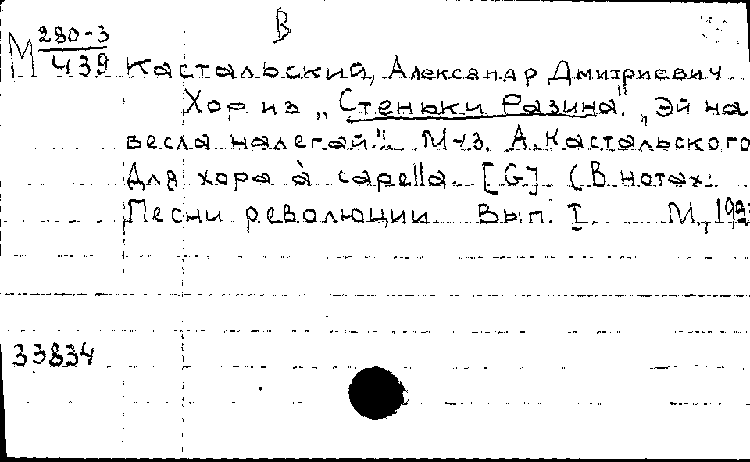 В
М 280-3
439 Кастальский, Александр Дмитриевич
Хор из „Стеньки Разина". „Эй на
весла налегай". М-з. А. Кастальского
Для хора à capella. [G] (В нотах:
Песни революции. Вып. I. М., 192
33834